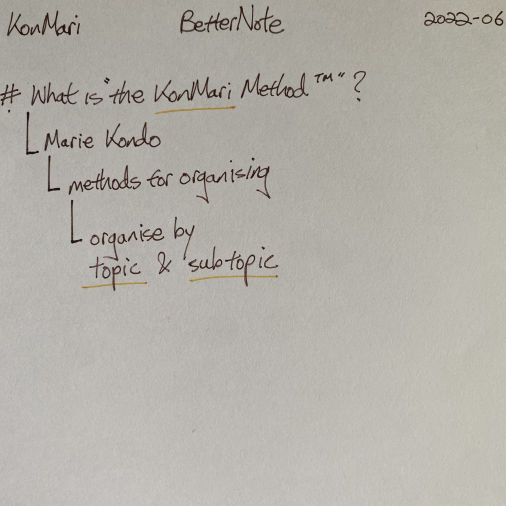 KonMari BetterNote 2022-06
# What is "the KonMari Method ™" ?
Marie Kondo
methods for organising
organise by
topic & subtopic